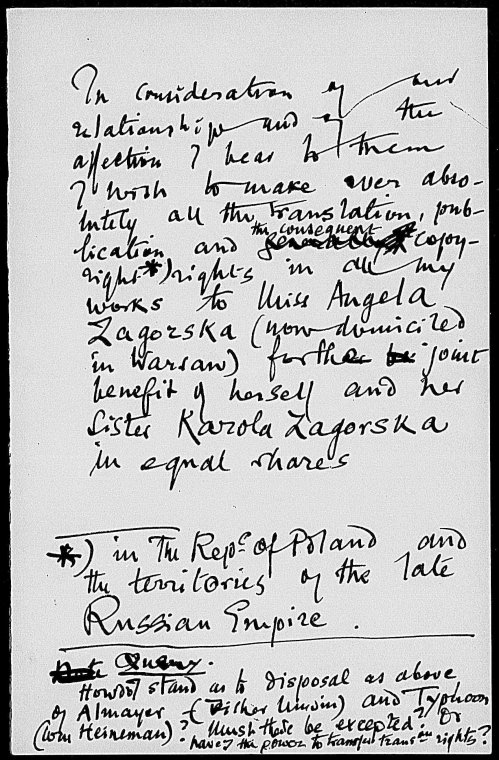 In consideration of our
relationship and of the
affection I bear to them
I wish to make over abso-
lutely all the translation, pub-
the consequent
lication and copy-
right*) rights in all my
works to Miss Angela
Zagorska (now domiciled
in Warsaw) for the joint
benefit of herself and her
Sister Karola Zagorska
in equal shares
*) in The Repc of Poland and
the territories of the late
Russian Empire.
Query.
How do I stand as to disposal as above
of Almayer (Fisher Unwin) and Typhoon
(Wm Heineman)? Must these be excepted? Or
have I the power to transfer transon rights?